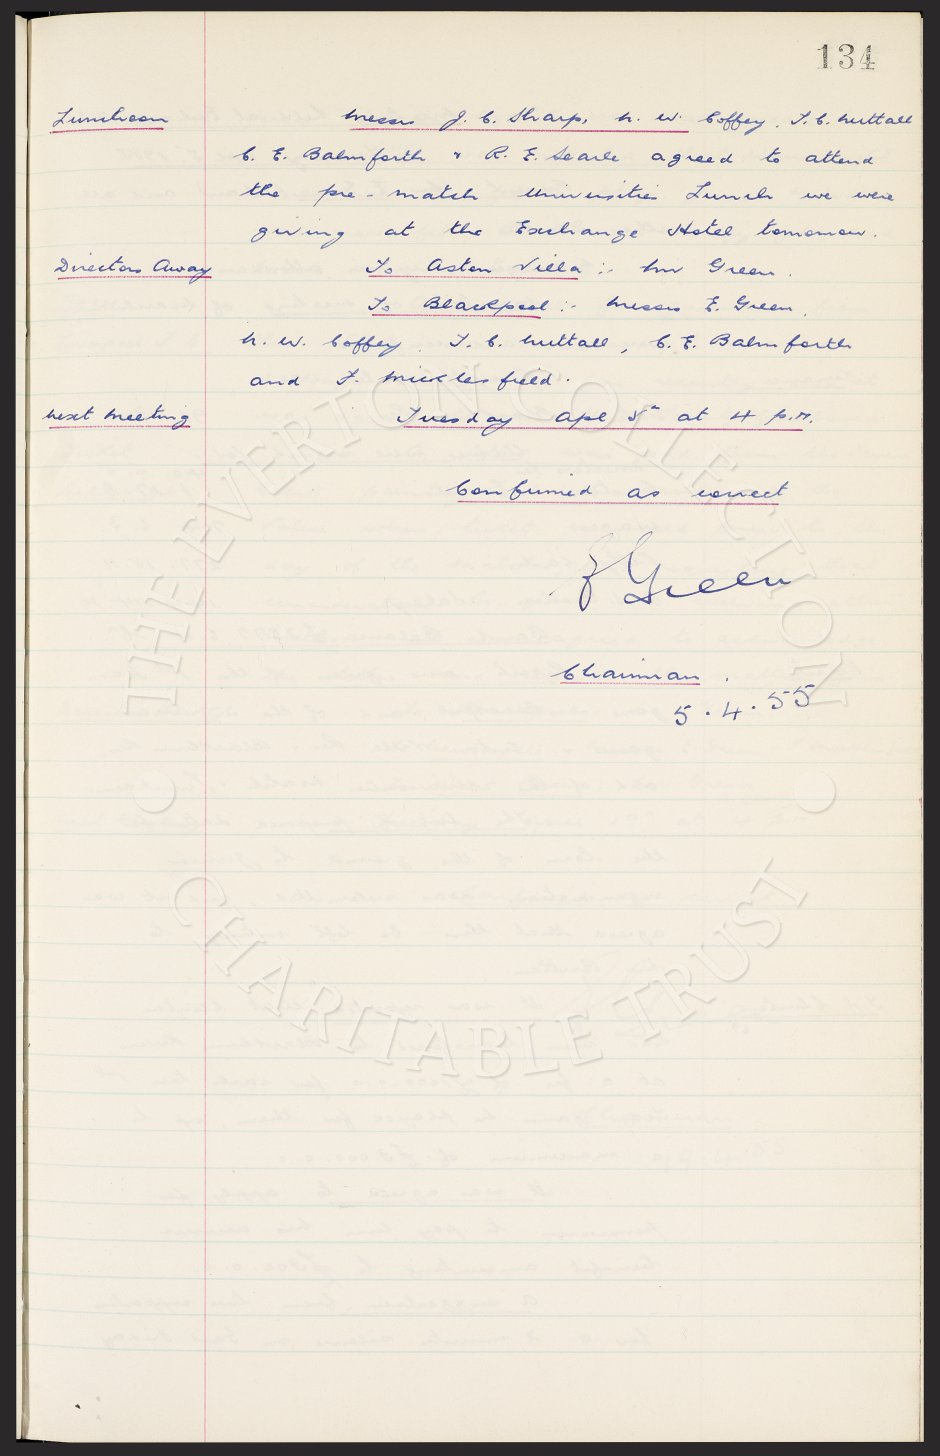 134
Luncheon Messrs J. C. Sharp, N. W. Coffey, T. C. Nuttall
C. E. Balmforth & R. E. Searle agreed to attend
the pre-match Universities Lunch we were
giving at the Exchange Hotel tomorrow.
Directors Away To Aston Villa :- Mr Green.
To Blackpool :- Messrs E. Green,
N. W. Coffey, T. C. Nuttall, C. E. Balmforth
and F. Micklesfield.
Next Meeting Tuesday Apl 5th at 4 p.m.
Confirmed as correct
E Green
Chairman.
5.4.55
THE EVERTON COLLECTION
CHARITABLE TRUST